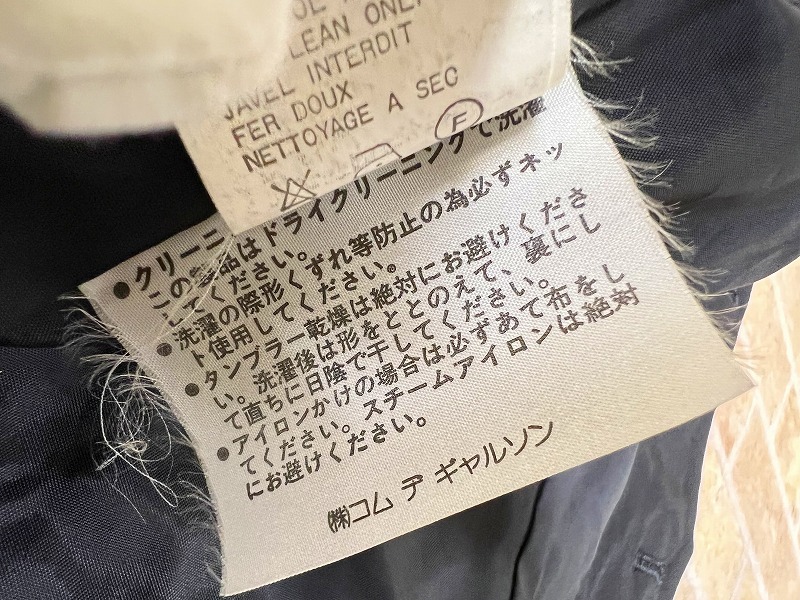 LEAN ONLY
JAVEL INTERDIT
FER DOUX
NETTOYAGE A SEC
F
●クリーニ
この製品はドライクリーニングで洗濯
してください。
●洗濯の際形くずれ等防止の為必ずネッ
ト使用してください。
●タンブラー乾燥は絶対にお避けくださ
い。洗濯後は形をととのえて、裏にし
て直ちに日陰で干してください。
●アイロンかけの場合は必ずあて布をし
てください。スチームアイロンは絶対
にお避けください。
㈱コム デ ギャルソン